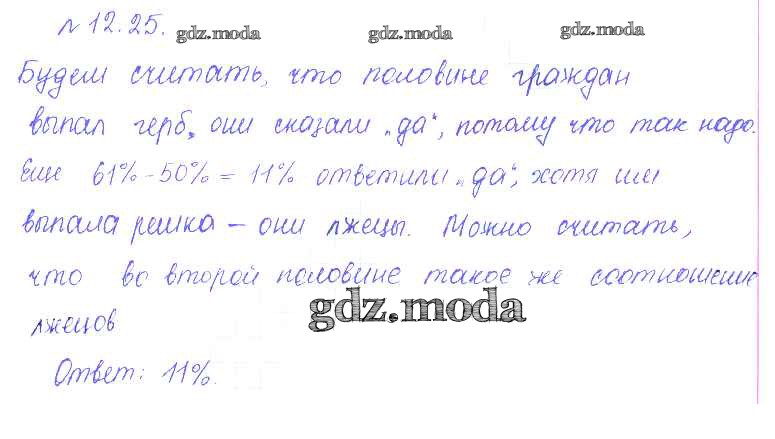 № 12.25.
gdz.moda gdz.moda gdz.moda
Будем считать, что половине граждан
выпал герб, они сказали „да“, потому что так надо.
Еще 61% - 50% = 11% ответили „да“, хотя им
выпала решка – они лжецы. Можно считать,
что во второй половине такое же соотношение
gdz.moda
лжецов
Ответ: 11%.